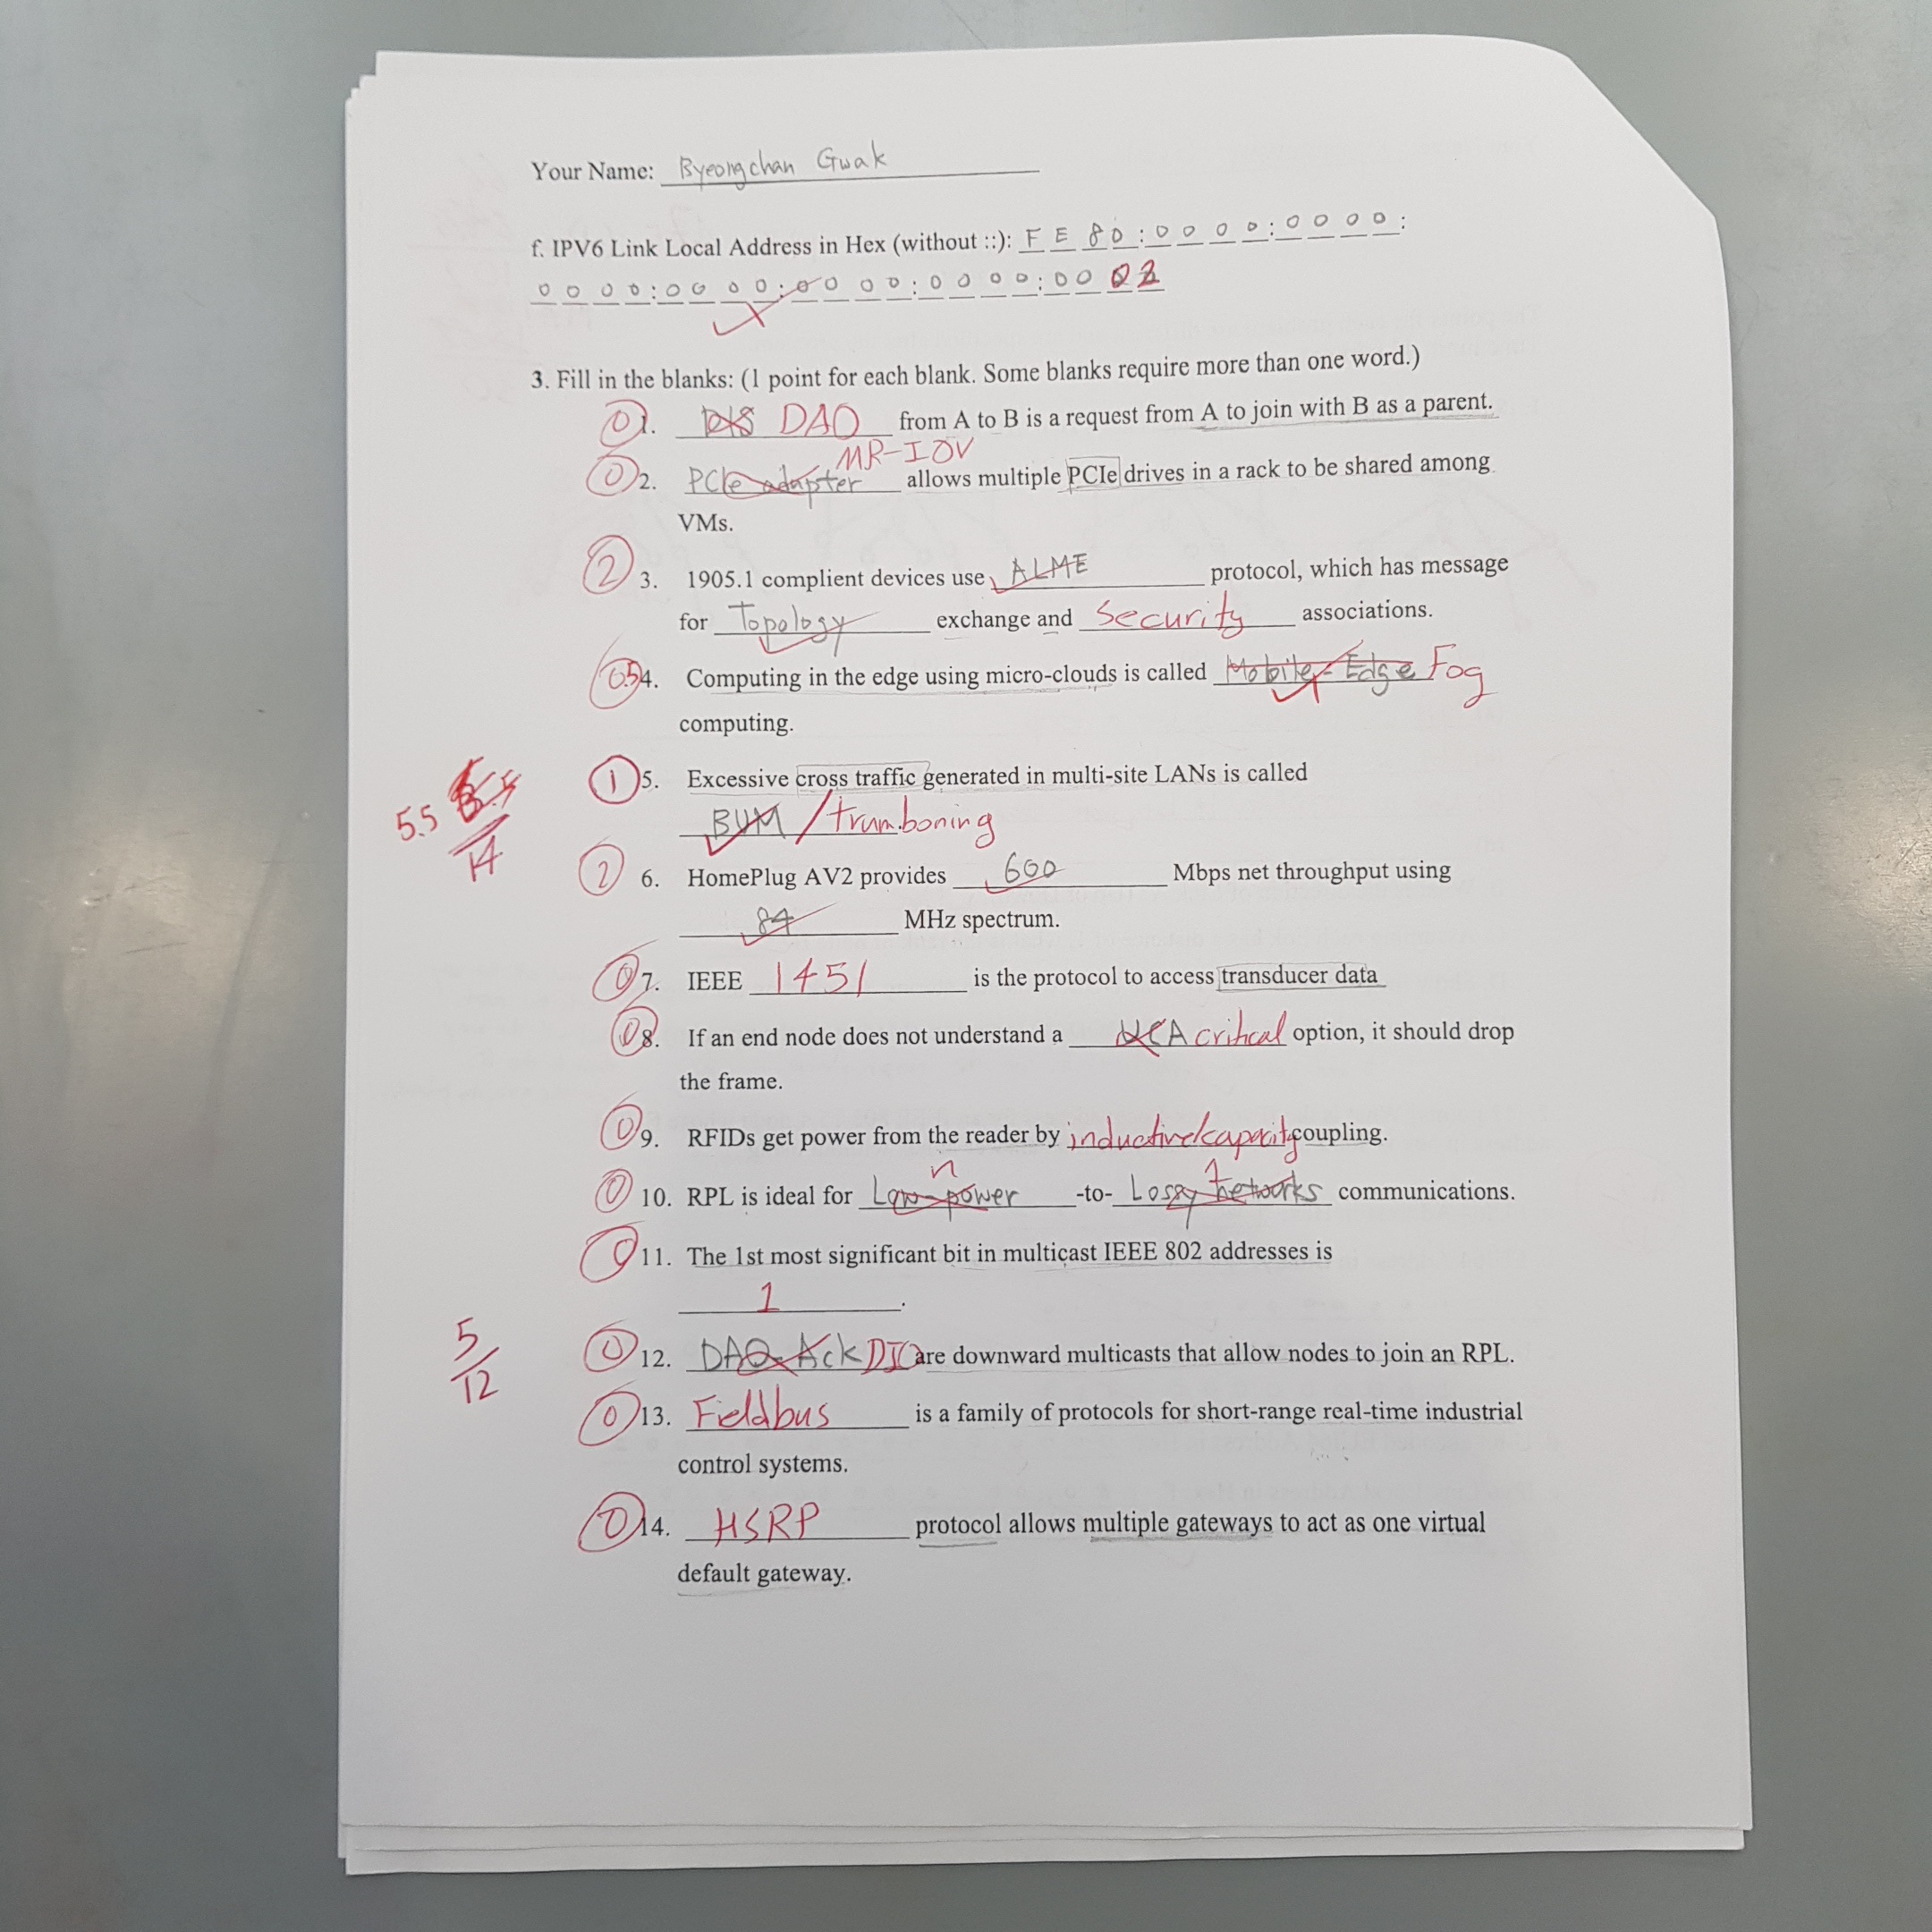 Your Name: Byeongchan Gwak
f. IPV6 Link Local Address in Hex (without ::): F E 8 0 : 0 0 0 0 : 0 0 0 0 :
0 0 0 0 : 0 0 0 0 : 0 0 0 0 : 0 0 0 0 : 0 0 0 2
3. Fill in the blanks: (1 point for each blank. Some blanks require more than one word.)
0 1. DIS DAO from A to B is a request from A to join with B as a parent.
MR-IOV
0 2. PCIe adapter allows multiple PCIe drives in a rack to be shared among
VMs.
2 3. 1905.1 complient devices use ALME protocol, which has message
for Topology exchange and Security associations.
0.5 4. Computing in the edge using micro-clouds is called Mobile-Edge Fog
computing.
1 5. Excessive cross traffic generated in multi-site LANs is called
5.5
BUM / tramboning
14
2 6. HomePlug AV2 provides 600 Mbps net throughput using
84 MHz spectrum.
0 7. IEEE 1451 is the protocol to access transducer data
0 8. If an end node does not understand a critical option, it should drop
the frame.
0 9. RFIDs get power from the reader by inductive/capacity coupling.
n 1
0 10. RPL is ideal for Low-power -to- Lossy networks communications.
0 11. The 1st most significant bit in multicast IEEE 802 addresses is
1.
5
12
0 12. DAO-Ack DIO are downward multicasts that allow nodes to join an RPL.
0 13. Fieldbus is a family of protocols for short-range real-time industrial
control systems.
0 14. HSRP protocol allows multiple gateways to act as one virtual
default gateway.